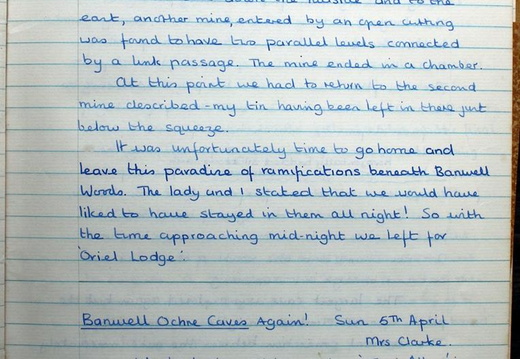 down the hillside and to the
east, another mine, entered by an open cutting
was found to have two parallel levels connected
by a link passage. The mine ended in a chamber.
At this point we had to return to the second
mine described - my tin having been left in there just
below the squeeze.
It was unfortunately time to go home and
leave this paradise of ramifications beneath Banwell
Woods. The lady and I stated that we would have
liked to have stayed in them all night! So with
the time approaching mid-night we left for
'Oriel Lodge'.
Banwell Ochre Caves Again! Sun 5th April
Mrs Clarke.